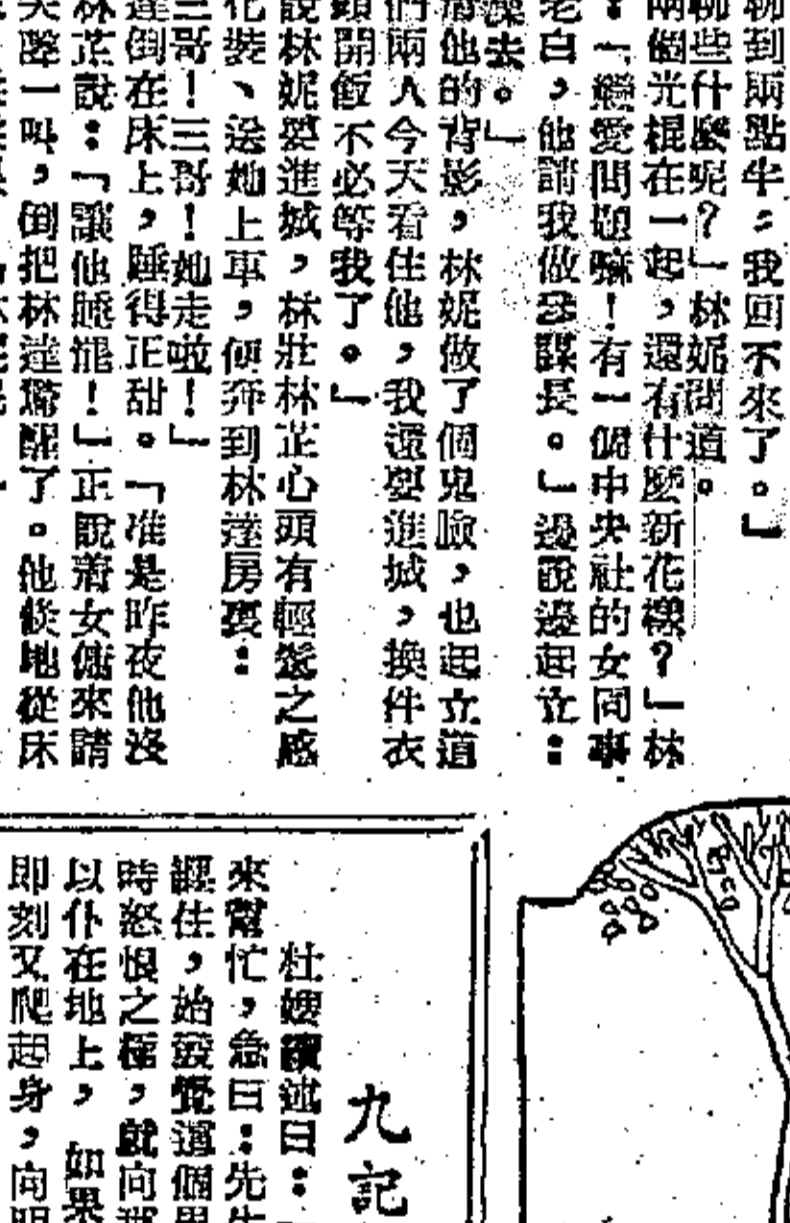 聊到兩點半，我回不來了。」
聊些什麼呢？」林妮問道。
兩個光棍在一起，還有什麼新花樣？」林
：「戀愛問題嘛！有一個中央社的女同事
老白，他請我做參謀長。」邊說邊起立：
澡去。」
着他的背影，林妮做了個鬼臉，也起立道
們兩人今天看住他，我還要進城，換件衣
頭開飯不必等我了。」
說林妮要進城，林壯林芷心頭有輕鬆之感
化裝、送她上車，便奔到林達房裏：
三哥！三哥！她走啦！」
達倒在床上，睡得正甜。「准是昨夜他沒
林芷說：「讓他睡罷！」正說着女傭來請
尖聲一叫，倒把林達驚醒了。他倏地從床
九記
杜嫂續述曰：
來幫忙，急曰：先生
纏住，始發覺這個男
時怒恨之極，就向
以仆在地上，如果
即刻又爬起身，向明